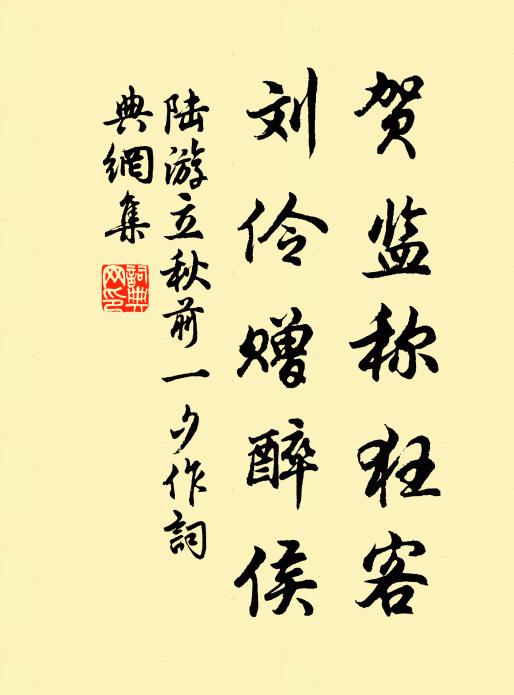 贺监称狂客
刘伶赠醉侯
陆游立秋前一夕作詞
典網集
詞典網印